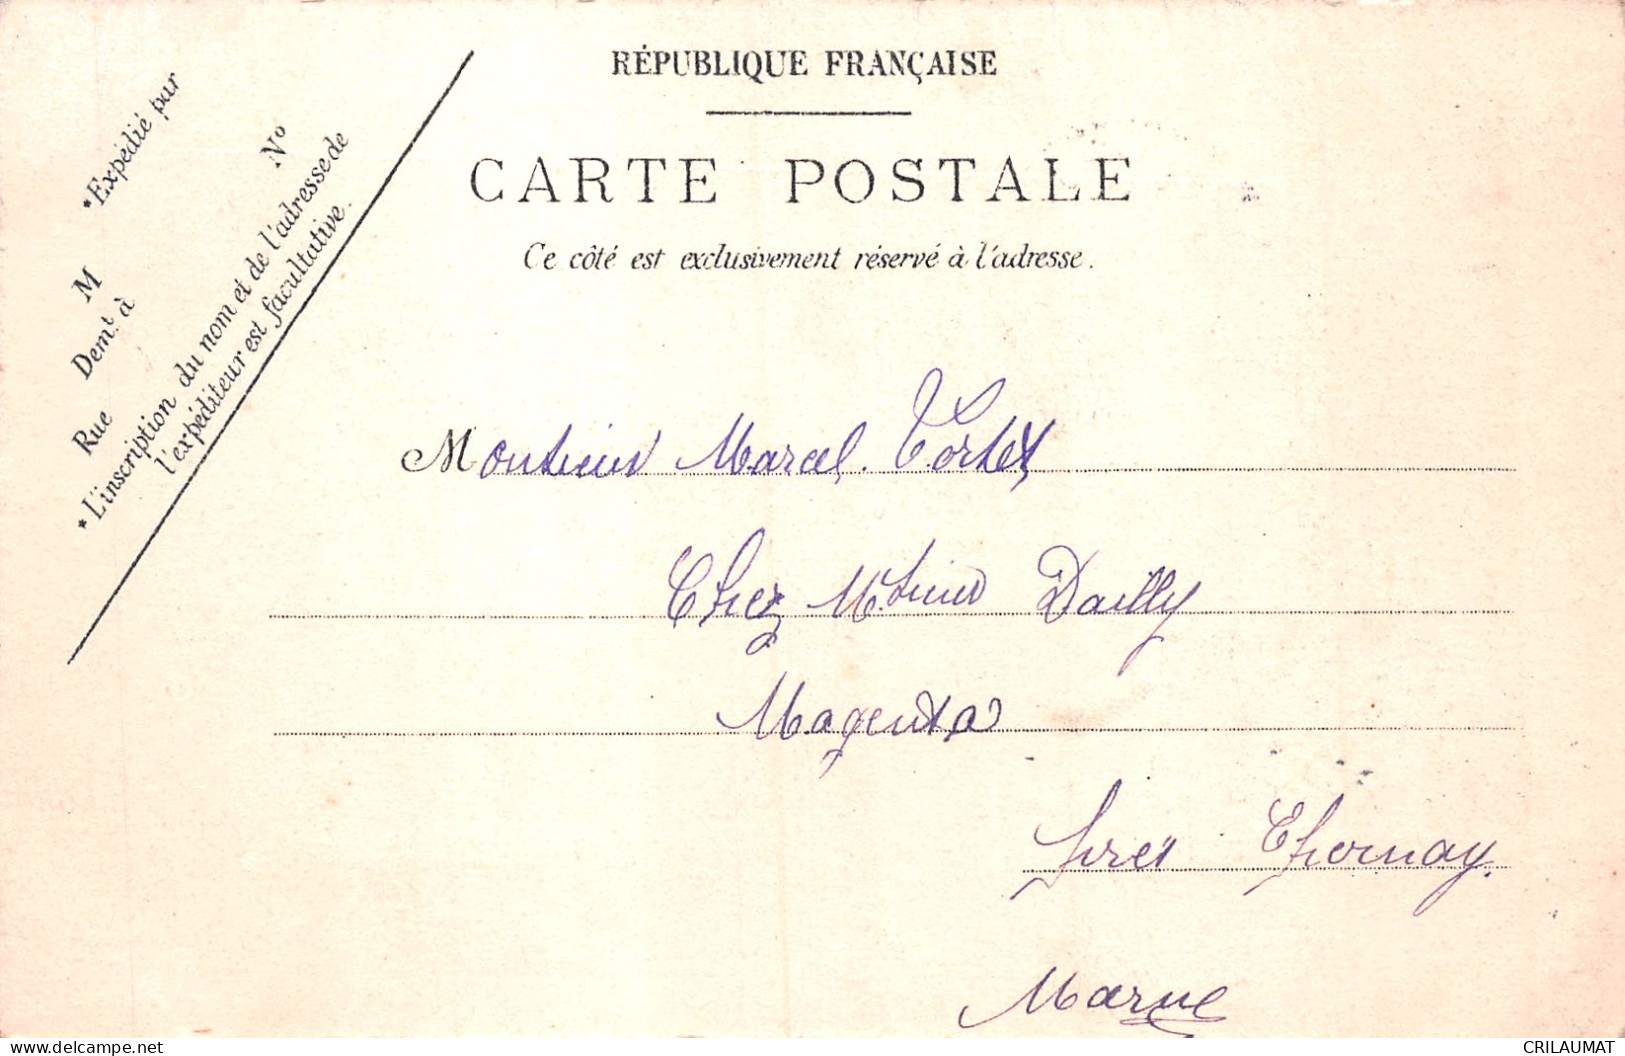 RÉPUBLIQUE FRANÇAISE
CARTE POSTALE
Ce côté est exclusivement réservé à l'adresse.
*Expédié par
M
Demt. à
Rue
No
*L'inscription du nom et de l'adresse de
l'expéditeur est facultative.
Monsieur Marcel Tortet
Chez Mr. Dailly
Magenta
près Epernay.
Marne
CRILAUMAT